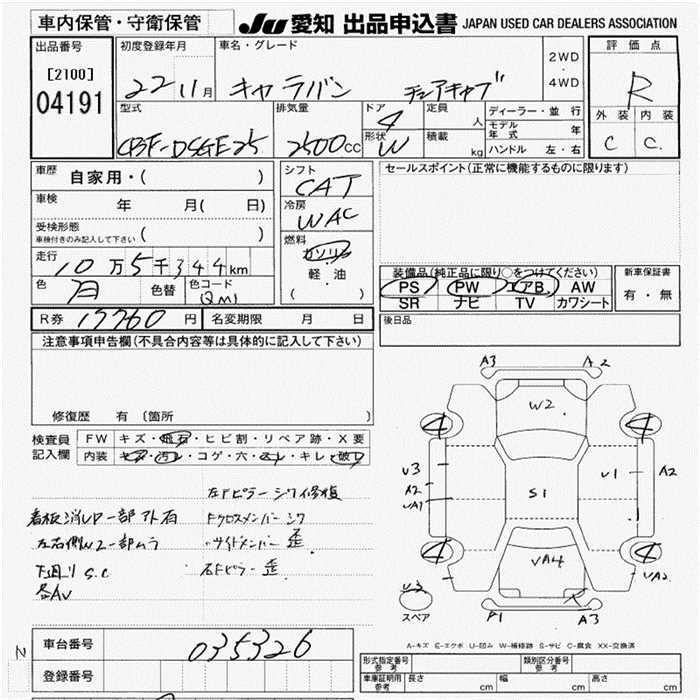 車内保管・守衛保管 JU 愛知 出品申込書 JAPAN USED CAR DEALERS ASSOCIATION
出品番号 初度登録年月 車名・グレード 評価点
[2100] 22 11月 キャラバン チェアキャブ 2WD・4WD R
04191
型式 排気量 ドア 4 定員 人 ディーラー・並行 外装 内装
CBF-DSGE25 2500cc 形状 W 積載 kg モデル年式 年 C C.
ハンドル 左・右
車歴 自家用・( ) シフト CAT セールスポイント(正常に機能するものに限ります)
車検 年 月( 日) 冷房 WAC
受検形態 ( )
車検付きのみ記入して下さい
燃料 ガソリン
走行 10万5千344km 軽・油
装備品(純正品に限り○をつけてください) 新車保証書
色 色替 色コード (QM) ( ) PS PW エアB. AW 有・無
SR ナビ TV カワシート
R券 17760円 名変期限 月 日 後日品
注意事項申告欄(不具合内容等は具体的に記入して下さい)
修復歴 有 〔箇所
検査員記入欄 FW キズ・飛石・ヒビ割・リペア跡・X要
内装 キズ・汚レ・コゲ・穴・スレ・キレ・破レ
A3 A2
4 W2 4
U3 A2 UA1 S1 U1 A2
4 VA4 4
U3 UA2
スペア P1 A3
左Fピラー シワ修複
看板消UP一部アト有 Fクロスメンバー シワ
左右側W2一部ムラ サイドメンバー 歪
下廻り S.C 右Fピラー 歪
各AV
A-キズ E-エクボ U-凹み W-補修跡 S-サビ C-腐食 XX-交換済
車台番号 035326
登録番号
形式指定番号 参考 類別区分番号 参考
車庫証明用 参考 長さ cm 幅 cm 高さ cm